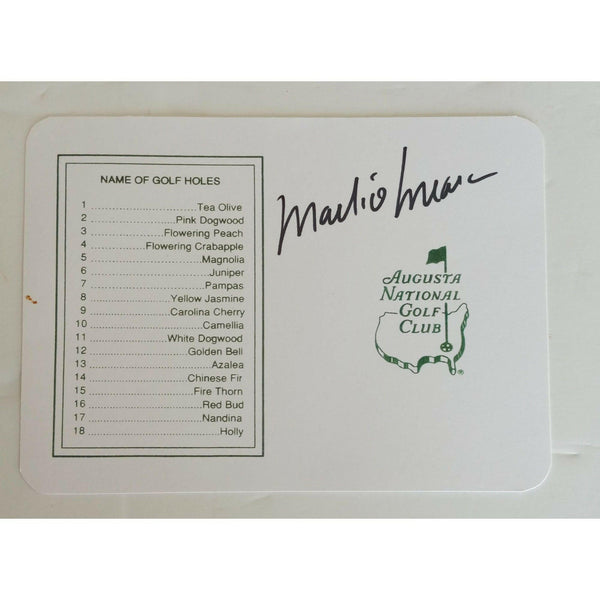 NAME OF GOLF HOLES
1 Tea Olive
2 Pink Dogwood
3 Flowering Peach
4 Flowering Crabapple
5 Magnolia
6 Juniper
7 Pampas
8 Yellow Jasmine
9 Carolina Cherry
10 Camellia
11 White Dogwood
12 Golden Bell
13 Azalea
14 Chinese Fir
15 Fire Thorn
16 Red Bud
17 Nandina
18 Holly
AUGUSTA
NATIONAL
GOLF
CLUB
®